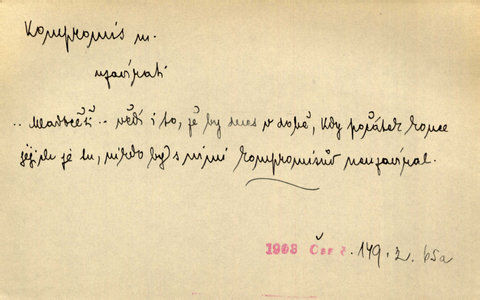 Kompromis m.
uzavírati
.. Mladočeši .. vědí i to, že by dnes v době, kdy počátek konce
jejich je tu, nikdo by s nimi kompromisův neuzavíral.
1903 Čas č. 149. 2. b5a